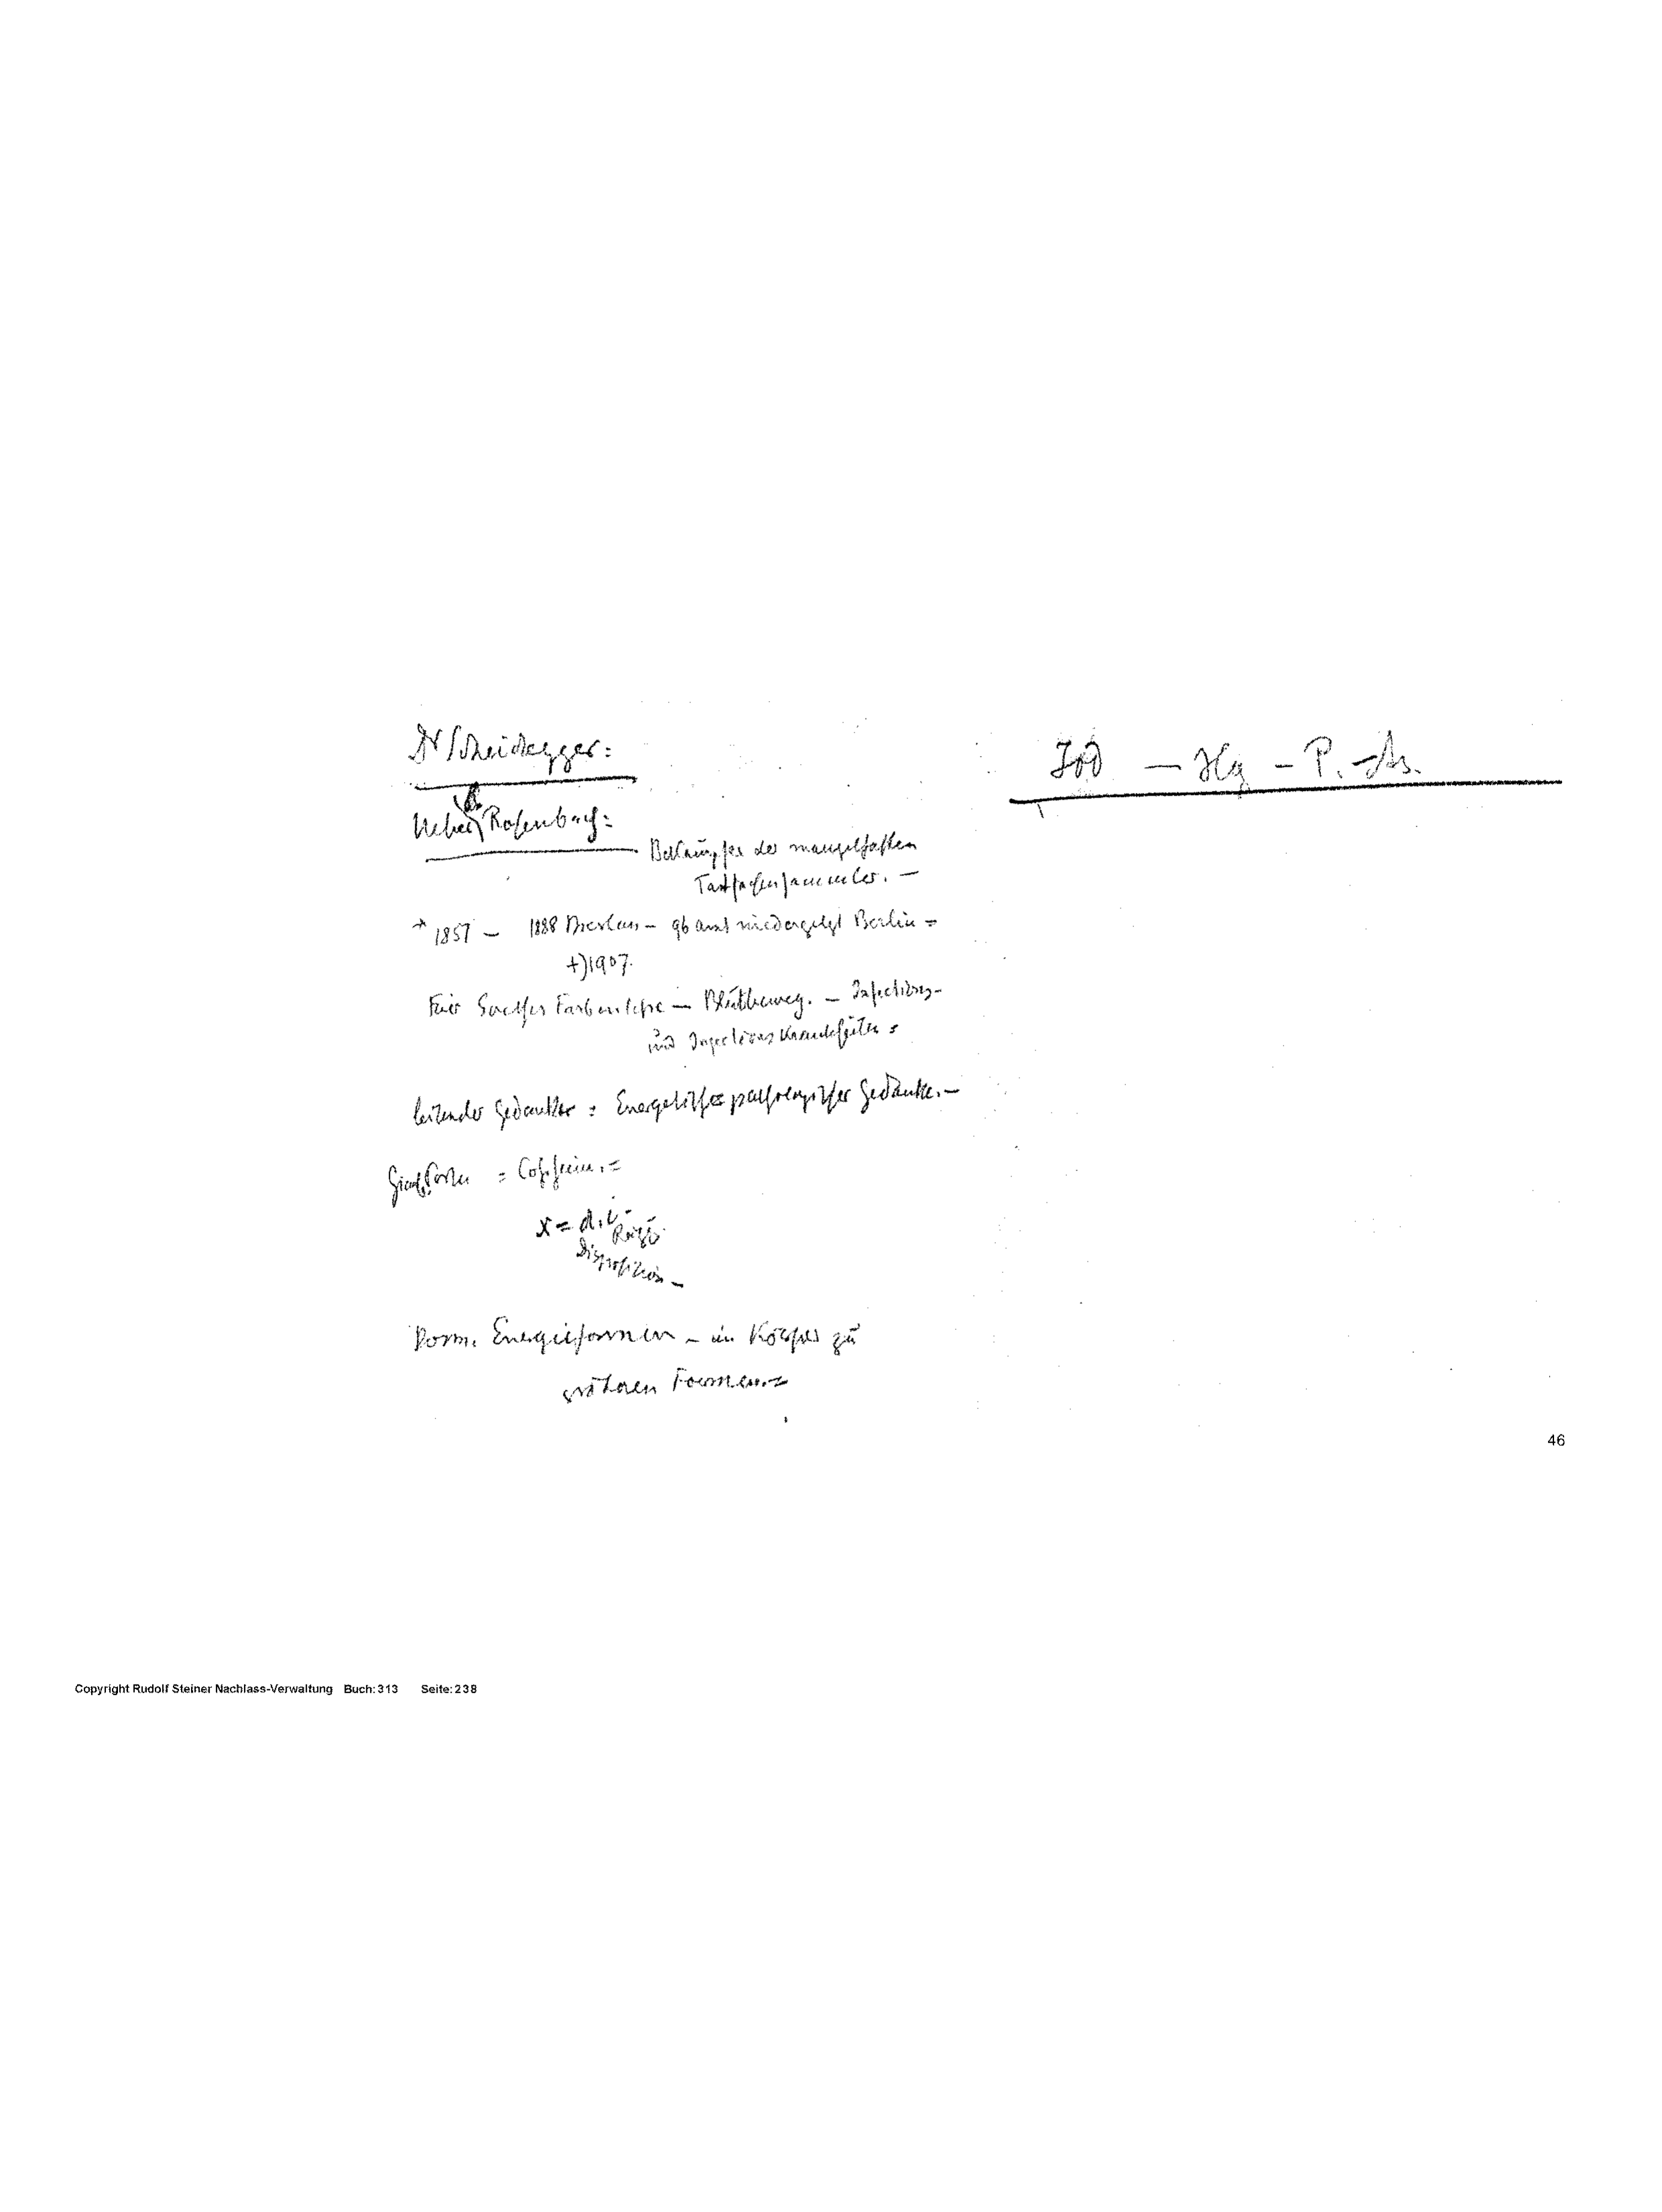 Dr Scheidegger:
Ueber Rosenbach:
Bekämpfer der mangelhaften
Tatsachensammler. —
* 1851 — 1888 Breslau — 96 amt niedergelegt Berlin =
+) 1907.
Für Goethes Farbenlehre — Blutbeweg. — Infections-
und Injections Krankheiten =
leitender Gedanke : Energetisches pathologischer Gedanke. —
= Coffein. =
x = d. i. -
Disposition —
Energieformen — im Körper zu
Formen. =
Jod — Hg — P. — As.
46
Copyright Rudolf Steiner Nachlass-Verwaltung Buch: 313 Seite: 238